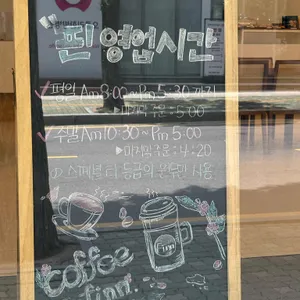 "핀! 영업시간
평일 Am 8:00 ~ Pm 5:30 까지
▶마지막 주문 : 5:00
주말 Am 10:30 ~ Pm 5:00
▶마지막 주문 : 4:20
스페셜티 등급의 원두만 사용
coffee
finn!
Finn